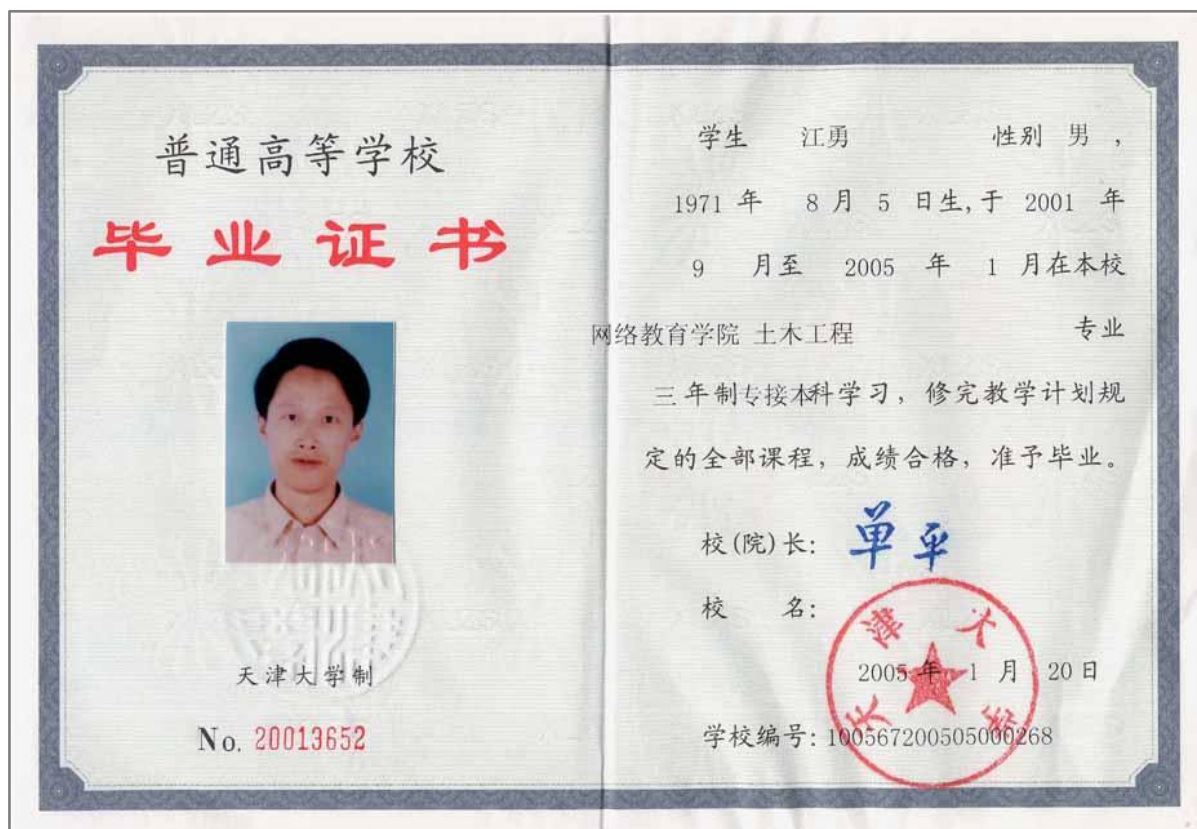 普通高等学校
毕业证书
天津大学制
No. 20013652
学生 江勇 性别 男，
1971 年 8 月 5 日生，于 2001 年
9 月至 2005 年 1 月在本校
网络教育学院 土木工程 专业
三年制专接本科学习，修完教学计划规
定的全部课程，成绩合格，准予毕业。
校(院)长： 单平
校 名：
天津大学
2005 年 1 月 20 日
学校编号：100567200505000268